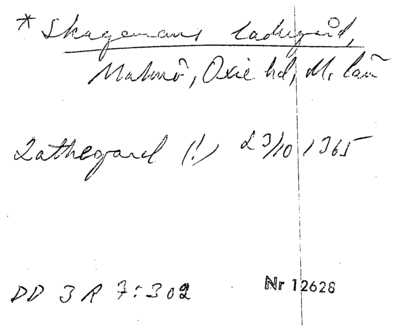 * Skagemans ladugård,
Malmö, Oxie hd, M. län
Lathegard (!) 23/10 1365
DD 3 R 7:302
Nr 12628